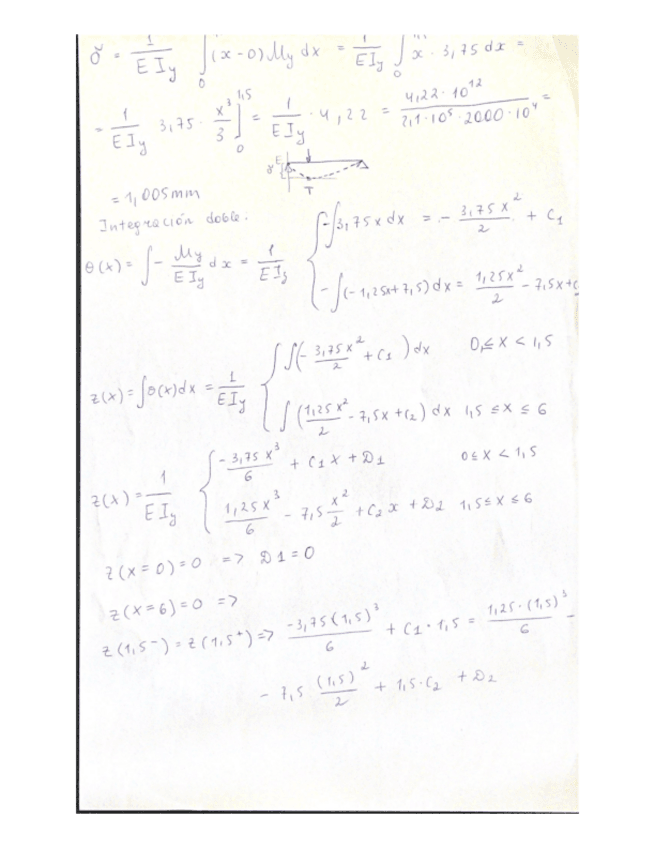 δ = 1/(E I_y) ∫_0 (x-0) M_y dx = 1/(E I_y) ∫_0 x · 3,75 dx =
= 1/(E I_y) 3,75 · x^3/3 ]_0^{1,5} = 1/(E I_y) · 4,22 = (4,22 · 10^12)/(2,1 · 10^5 · 2000 · 10^4) =
E
γ
T
= 1,005 mm
Integración doble.
θ(x) = ∫ - M_y/(E I_y) dx = 1/(E I_y) { -∫3,75 x dx = - 3,75 x^2/2 + C1
-∫(-1,25x + 7,5) dx = 1,25x^2/2 - 7,5x + C
z(x) = ∫θ(x)dx = 1/(E I_y) { ∫(- 3,75 x^2/2 + C1) dx 0 ≤ x < 1,5
∫(1,25 x^2/2 - 7,5x + C2) dx 1,5 ≤ x ≤ 6
z(x) = 1/(E I_y) { -3,75 x^3/6 + C1 x + D1 0 ≤ x < 1,5
1,25 x^3/6 - 7,5 x^2/2 + C2 x + D2 1,5 ≤ x ≤ 6
z(x = 0) = 0 => D1 = 0
z(x = 6) = 0 =>
z(1,5^-) = z(1,5^+) => -3,75(1,5)^3/6 + C1 · 1,5 = 1,25 · (1,5)^3/6 -
- 7,5 (1,5)^2/2 + 1,5 · C2 + D2